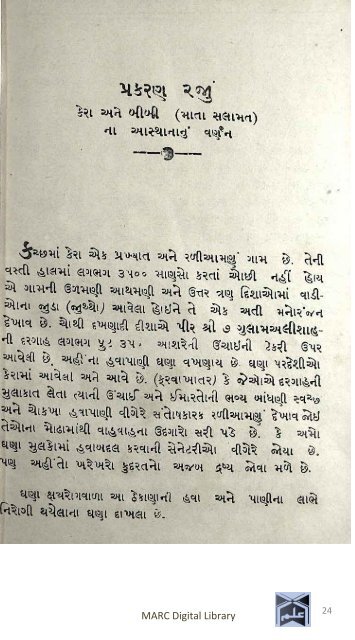 પ્રકરણ ૨જું
કેરા અને બીબી (માતા સલામત)
ના આસ્થાનાનું વર્ણન
કચ્છમાં કેરા એક પ્રખ્યાત અને રળીઆમણું ગામ છે. તેની
વસ્તી હાલમાં લગભગ ૩૫૦૦ માણસો કરતાં ઓછી નહીં હોય
એ ગામની ઉગમણી આથમણી અને ઉત્તર ત્રણ દિશાઓમાં વાડી-
ઓના જુડા (જુથ્થો) આવેલા હોઇને તે એક અતી મનોરંજન
દેખાવ છે. ચોથી દખણાદી દીશાએ પીર શ્રી ૭ ગુલામઅલીશાહ-
ની દરગાહ લગભગ ફુટ ૩૫૦ આશરેની ઉંચાઇની ટેકરી ઉપર
આવેલી છે. અહીંના હવાપાણી ઘણા વખણાય છે. ઘણા પરદેશીઓ
કેરામાં આવેલા અને આવે છે. (ફરવાખાતર) કે જેઓએ દરગાહની
મુલાકાત લેતા ત્યાની ઉંચાઈ અને ઈમારતોની ભવ્ય બાંધણી સ્વચ્છ
અને ચોકખા હવાપાણી વીગેરે સંતોષકારક રળીઆમણું દેખાવ જોઇ
તેઓના મોઢામાંથી વાહવાહના ઉદગારો સરી પડે છે. કે અમો
ઘણા મુલકોમાં હવાબદલ કરવાની સેનેટરીઓ વીગેરે જોયા છે.
પણ અહીં તો ખરેખરો કુદરતનો અજબ દ્રષ્ય જોવા મળે છે.
ઘણા ક્ષયરોગવાળા આ ઠેકાણાની હવા અને પાણીના લાભે
નિરોગી થયેલાના ઘણા દાખલા છે.
MARC Digital Library
علم
24